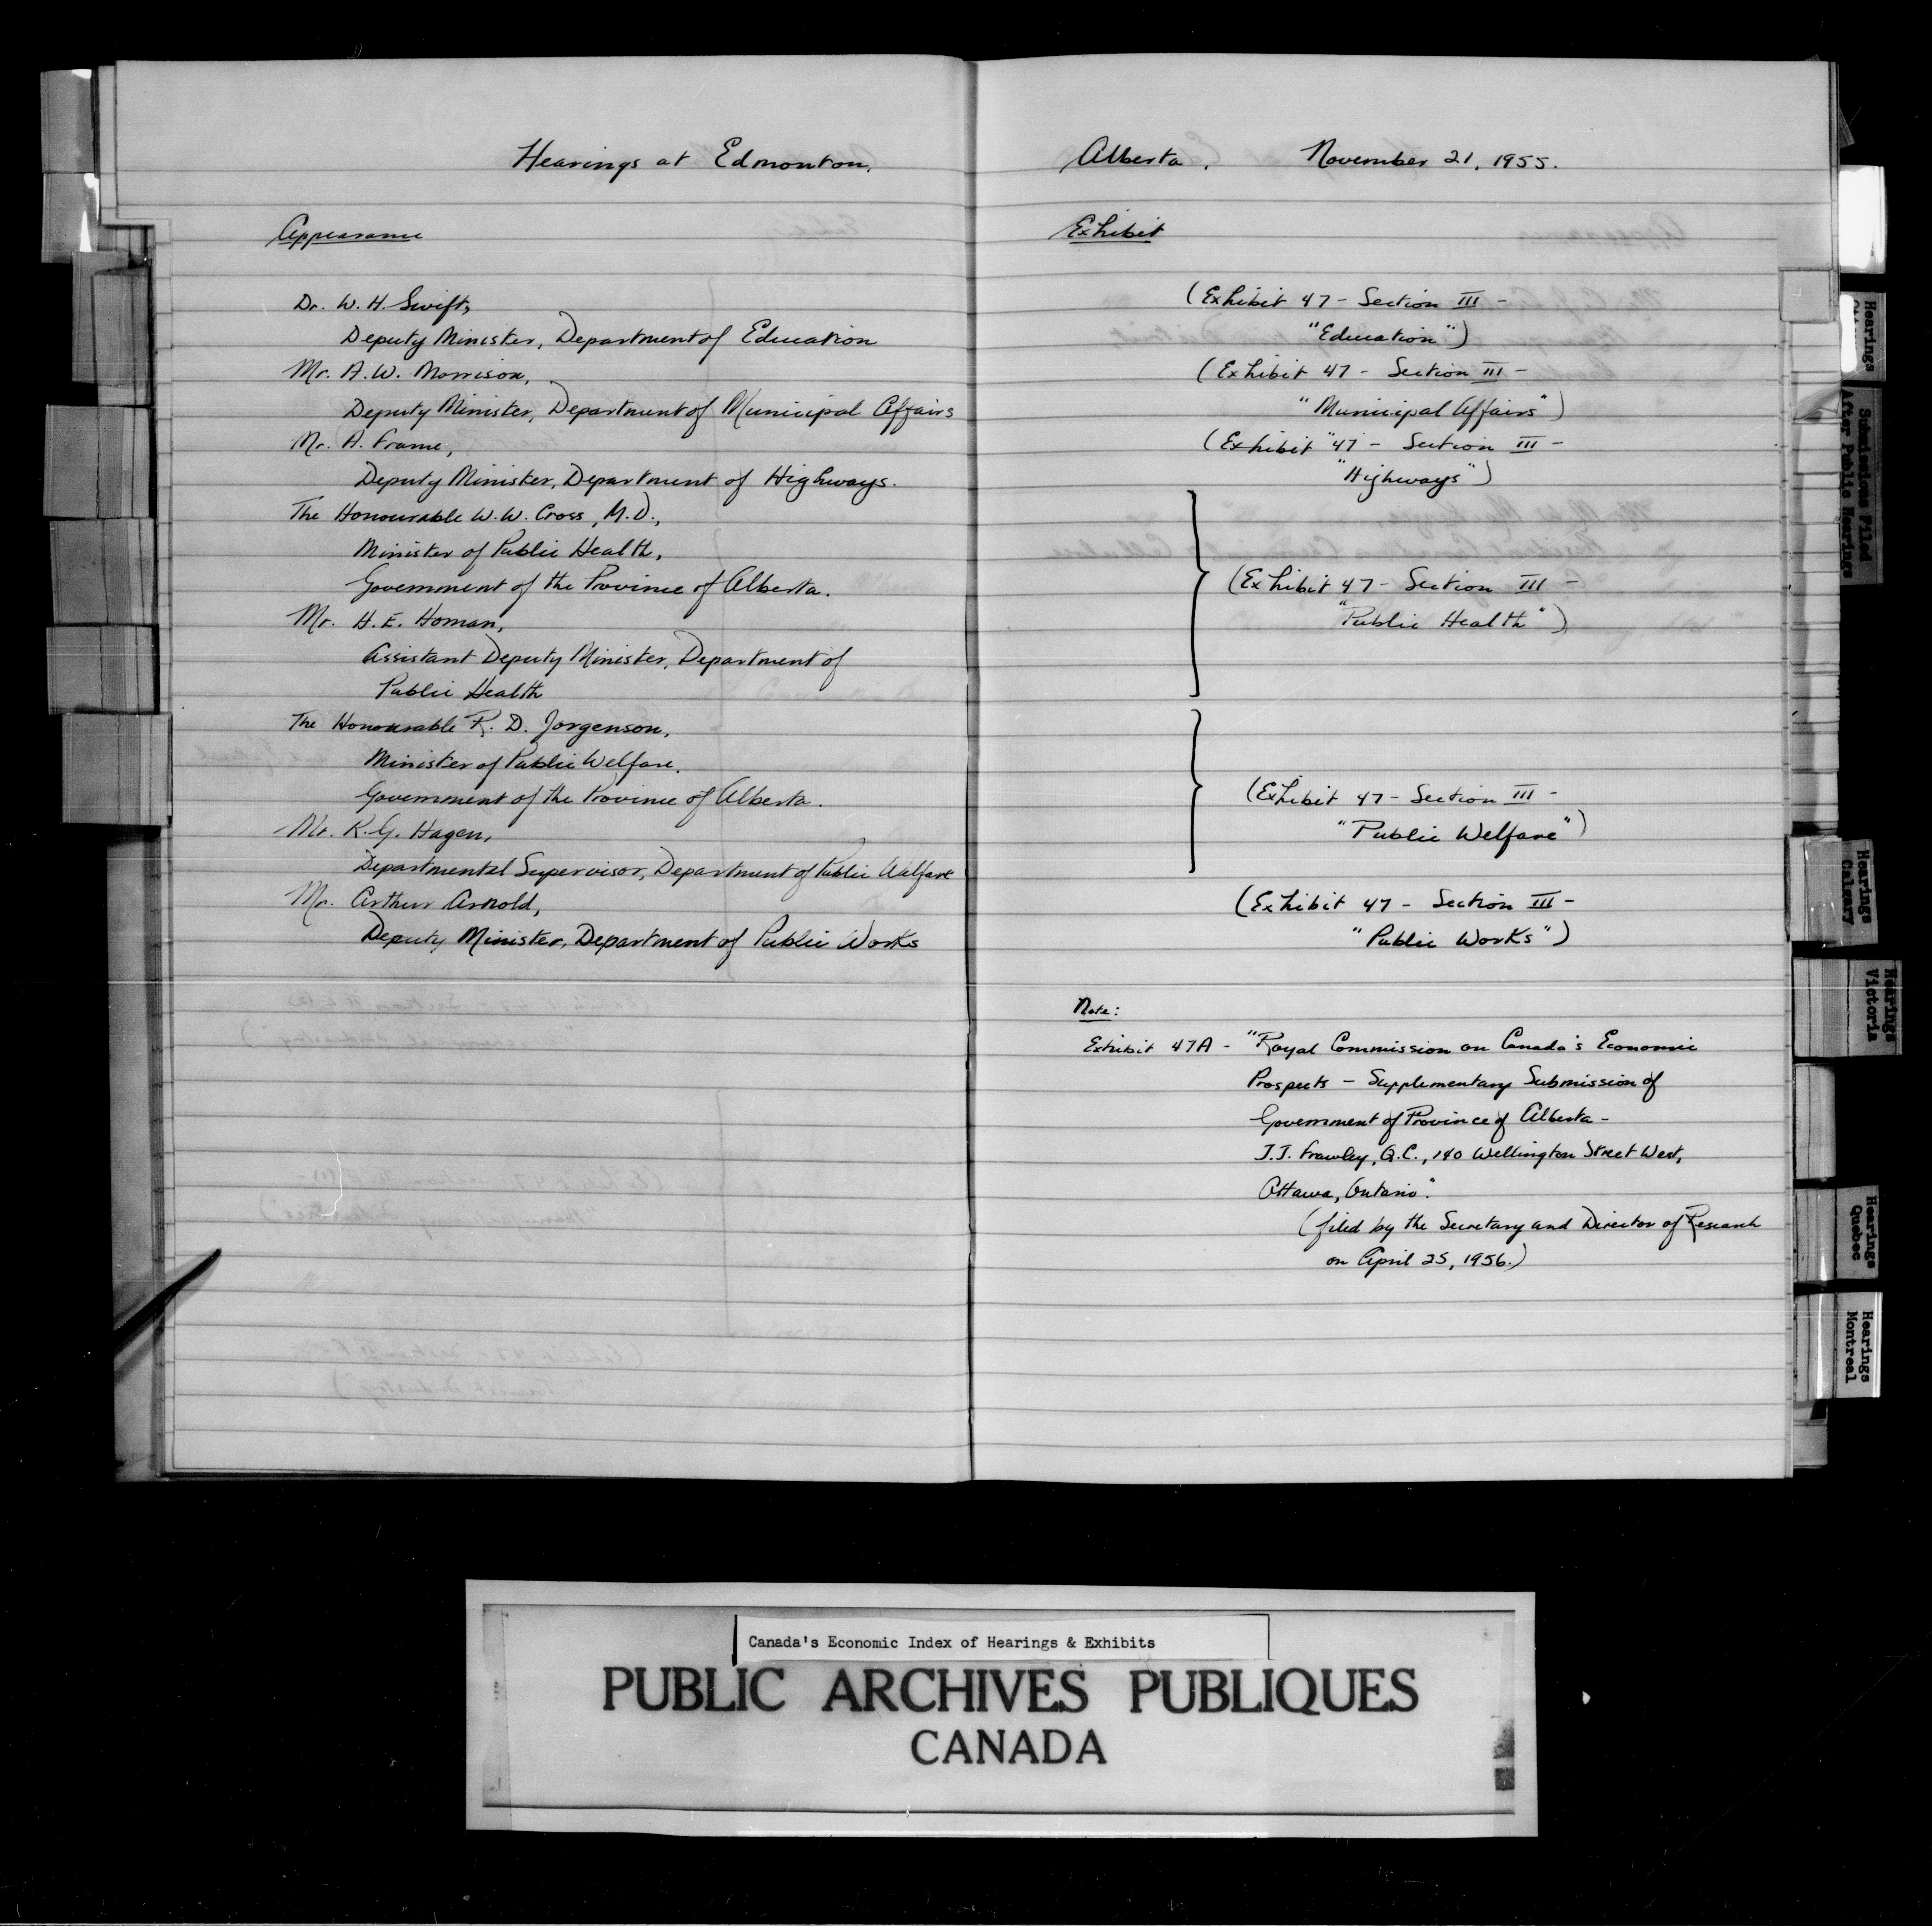 Hearings at Edmonton,
Appearance
Dr. W. H. Swift,
Deputy Minister, Department of Education
Mr. A. W. Morrison,
Deputy Minister, Department of Municipal Affairs
Mr. A. Frame,
Deputy Minister, Department of Highways.
The Honourable W. W. Cross, M.D.,
Minister of Public Health,
Government of the Province of Alberta.
Mr. H. E. Homan,
Assistant Deputy Minister, Department of
Public Health
The Honourable R. D. Jorgenson,
Minister of Public Welfare,
Government of the Province of Alberta.
Mr. K. G. Hagen,
Departmental Supervisor, Department of Public Welfare
Mr. Arthur Arnold,
Deputy Minister, Department of Public Works
Alberta. November 21, 1955.
Exhibit
(Exhibit 47 - Section III -
"Education")
(Exhibit 47 - Section III -
"Municipal Affairs")
(Exhibit "47 - Section III -
"Highways")
(Exhibit 47 - Section III -
"Public Health")
(Exhibit 47 - Section III -
"Public Welfare")
(Exhibit 47 - Section III -
"Public Works")
Note:
Exhibit 47A - "Royal Commission on Canada's Economic
Prospects - Supplementary Submission of
Government of Province of Alberta -
J.J. Frawley, Q.C., 140 Wellington Street West,
Ottawa, Ontario".
(filed by the Secretary and Director of Research
on April 25, 1956.)
Hearings
Submissions Filed
After Public Hearings
Hearings
Calgary
Hearings
Victoria
Hearings
Quebec
Hearings
Montreal
Canada's Economic Index of Hearings & Exhibits
PUBLIC ARCHIVES PUBLIQUES
CANADA